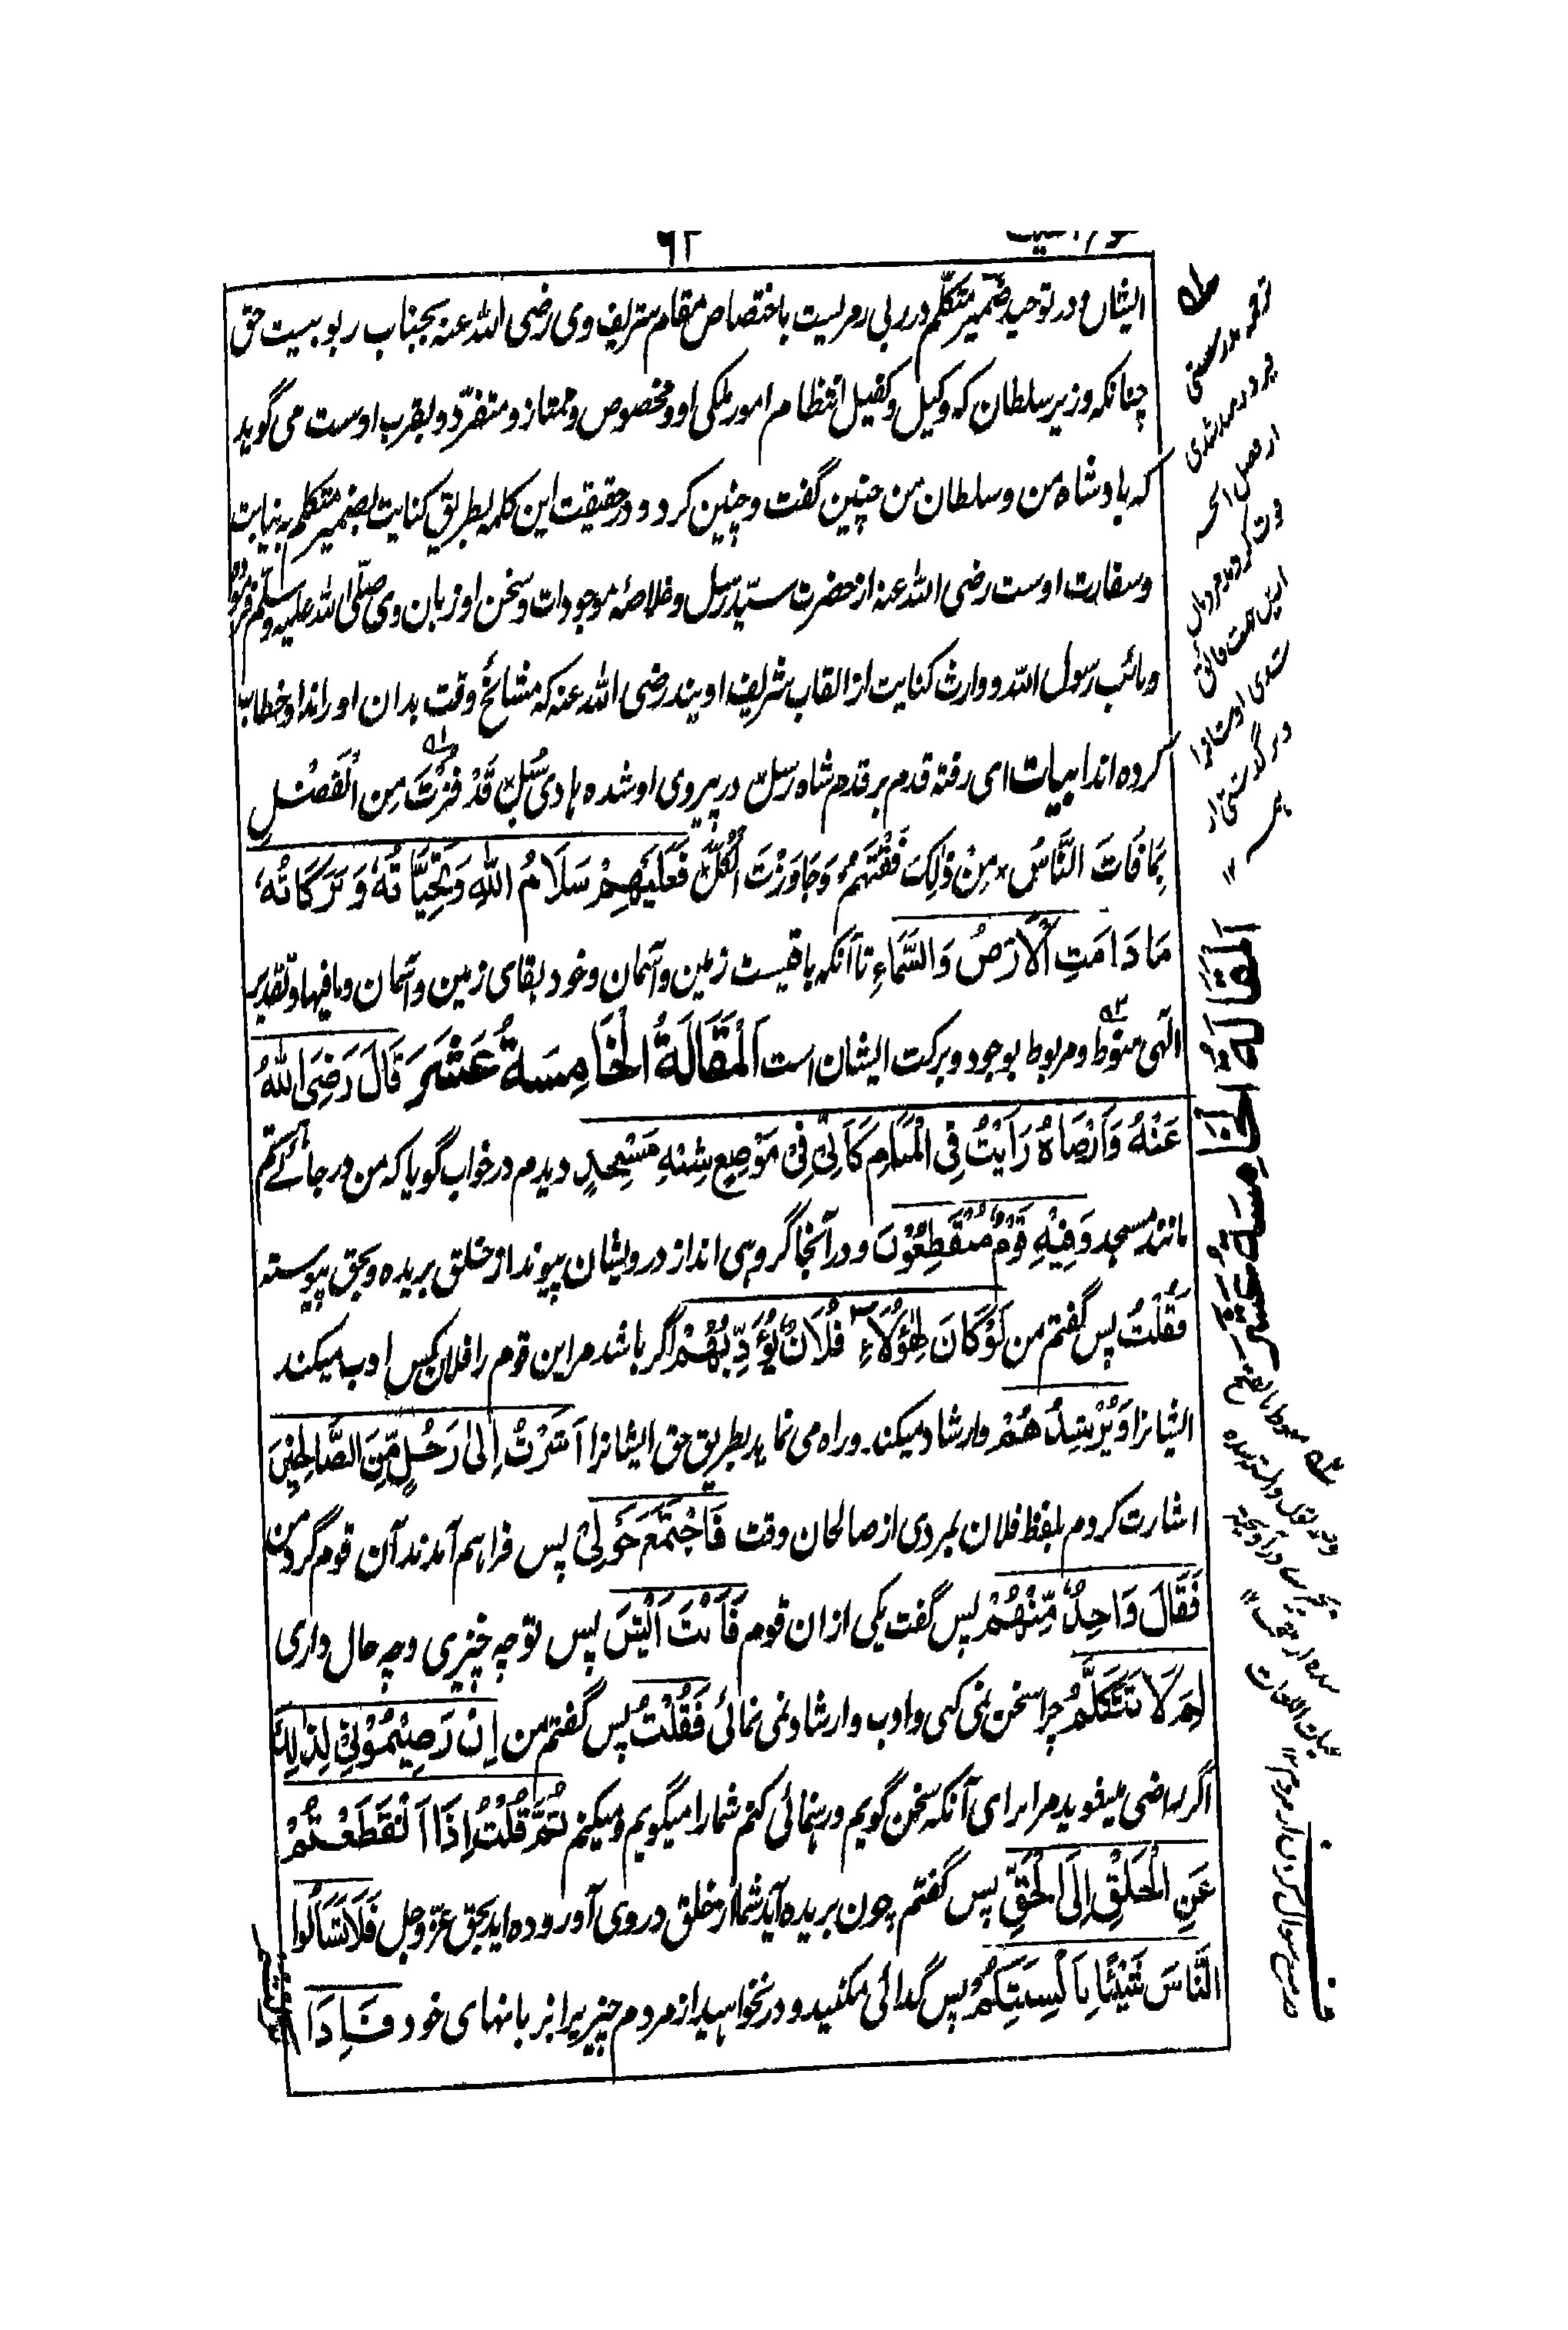 ٦٢
ایشان و در توحید ضمیر متکلم در ربی رمریست باختصاص مقام شریف وی رضی الله عنه بجناب ربوبیت حق
چنانکه وزیر سلطان که وکیل و کفیل انتظام امور ملکی او و مخصوص و ممتاز و متفرّد و بقرب اوست می گوید
که بادشاه من و سلطان من چنین گفت و چنین کرد و در حقیقت این کلمه بطریق کنایت بضمیر متکلم به نیابت
و سفارت اوست رضی الله عنه از حضرت سیّد رسل و خلاصهٔ موجودات و سخن او زبان وی صلّی الله علیه وسلّم
و نائب رسول الله و وارث کنایت از القاب شریف اویند رضی الله عنه که مشائخ وقت بدان او را ندا و خطاب
کرده اند ابیات ای رفته قدم بر قدم شاه رسل در پیروی او شده هادی سُبل قَدْ فُزْتَ مِنَ الْفَضْلِ
بِمَا فَاتَ النَّاسُ مِنْ ذٰلِكَ فَفُتَّهُمْ وَجَاوَزْتَ الْكُلَّ فَعَلَيْهِمْ سَلَامُ اللهِ وَتَحِيَّاتُهُ وَبَرَكَاتُهُ
مَا دَامَتِ الْاَرْضُ وَالسَّمَاءِ تا آنکه باقیست زمین و آسمان و خود بقای زمین و آسمان و مافیها و تقدیر
الٓهی منوط و مربوط بوجود و برکت ایشان است اَلْمَقَالَةُ الْخَامِسَةُ عَشَرَ قَالَ رَضِیَ اللهُ
عَنْهُ وَاَرْضَاهُ رَاَیْتُ فِی الْمَنَامِ كَاَنِّیْ فِیْ مَوْضِعٍ شِبْهِ مَسْجِدٍ دیدم در خواب گویا که من در جائے ام
مانند مسجد وَفِیْهِ قَوْمٌ مُنْقَطِعُوْنَ و در آنجا گروهی اند از درویشان پیوند از خلق بریده و بحق پیوسته
فَقُلْتُ پس گفتم من لَوْ كَانَ لِهٰؤُلَاءِ فُلَانٌ یُؤَدِّبُهُمْ اگر باشد مر این قوم را فلان کس ادب میکند
ایشانرا وَیُرْشِدُهُمْ و ارشاد میکند۔ و راه می نماید بطریق حق ایشانرا اَشَرْتُ اِلٰی رَجُلٍ مِّنَ الصَّالِحِیْنَ
اشارت کردم بلفظ فلان بمردی از صالحان وقت فَاجْتَمَعَ حَوْلِیْ پس فراهم آمدند آن قوم گرد من
فَقَالَ وَاحِدٌ مِّنْهُمْ پس گفت یکی از ان قوم فَاَنْتَ اَیْشَ پس تو چه چیزی و چه حال داری
لِمَ لَا تَتَكَلَّمُ چرا سخن نمی کنی و ادب و ارشاد نمی نمائی فَقُلْتُ پس گفتم من اِنْ رَضِیْتُمُوْنِیْ لِذٰلِكَ
اگر راضی میشوید مرا برای آنکه سخن گویم و رهنمائی کنم شما را میگویم و میکنم ثُمَّ قُلْتُ اِذَا انْقَطَعْتُمْ
عَنِ الْخَلْقِ اِلَی الْحَقِّ پس گفتم چون بریده آید شما از خلق و روی آورده اید بحق عزّ و جل فَلَا تَسْاَلُوا
النَّاسَ شَیْئًا بِاَلْسِنَتِكُمْ پس گدائی مکنید و درنخواهید از مردم چیزیرا بزبانهای خود فَاِذَا
اَلْمَقَالَةُ الْخَامِسَةُ عَشَرَ